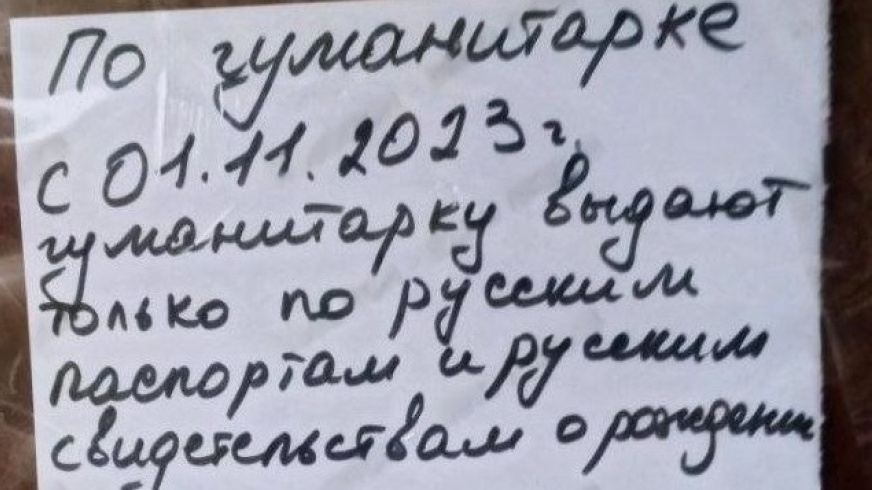 По гуманитарке
с 01.11.2023 г.
гуманитарку выдают
только по русским
паспортам и русским
свидетельствам о рождении